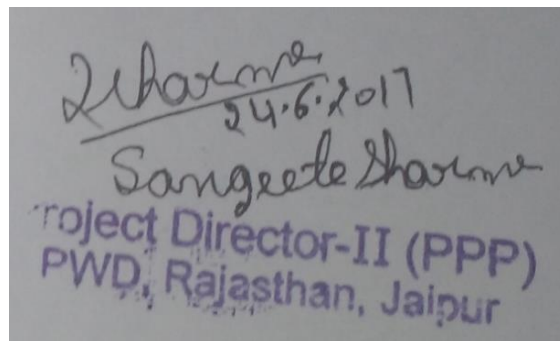 Sharma
24.6.2017
Sangeeta Sharma
roject Director-II (PPP)
PWD, Rajasthan, Jaipur